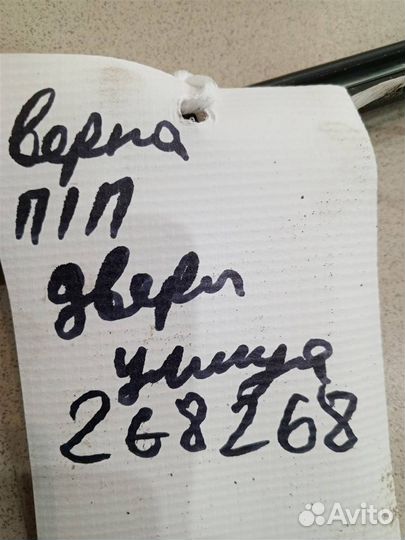 Верна
П/П
двери
улица
268268
Avito